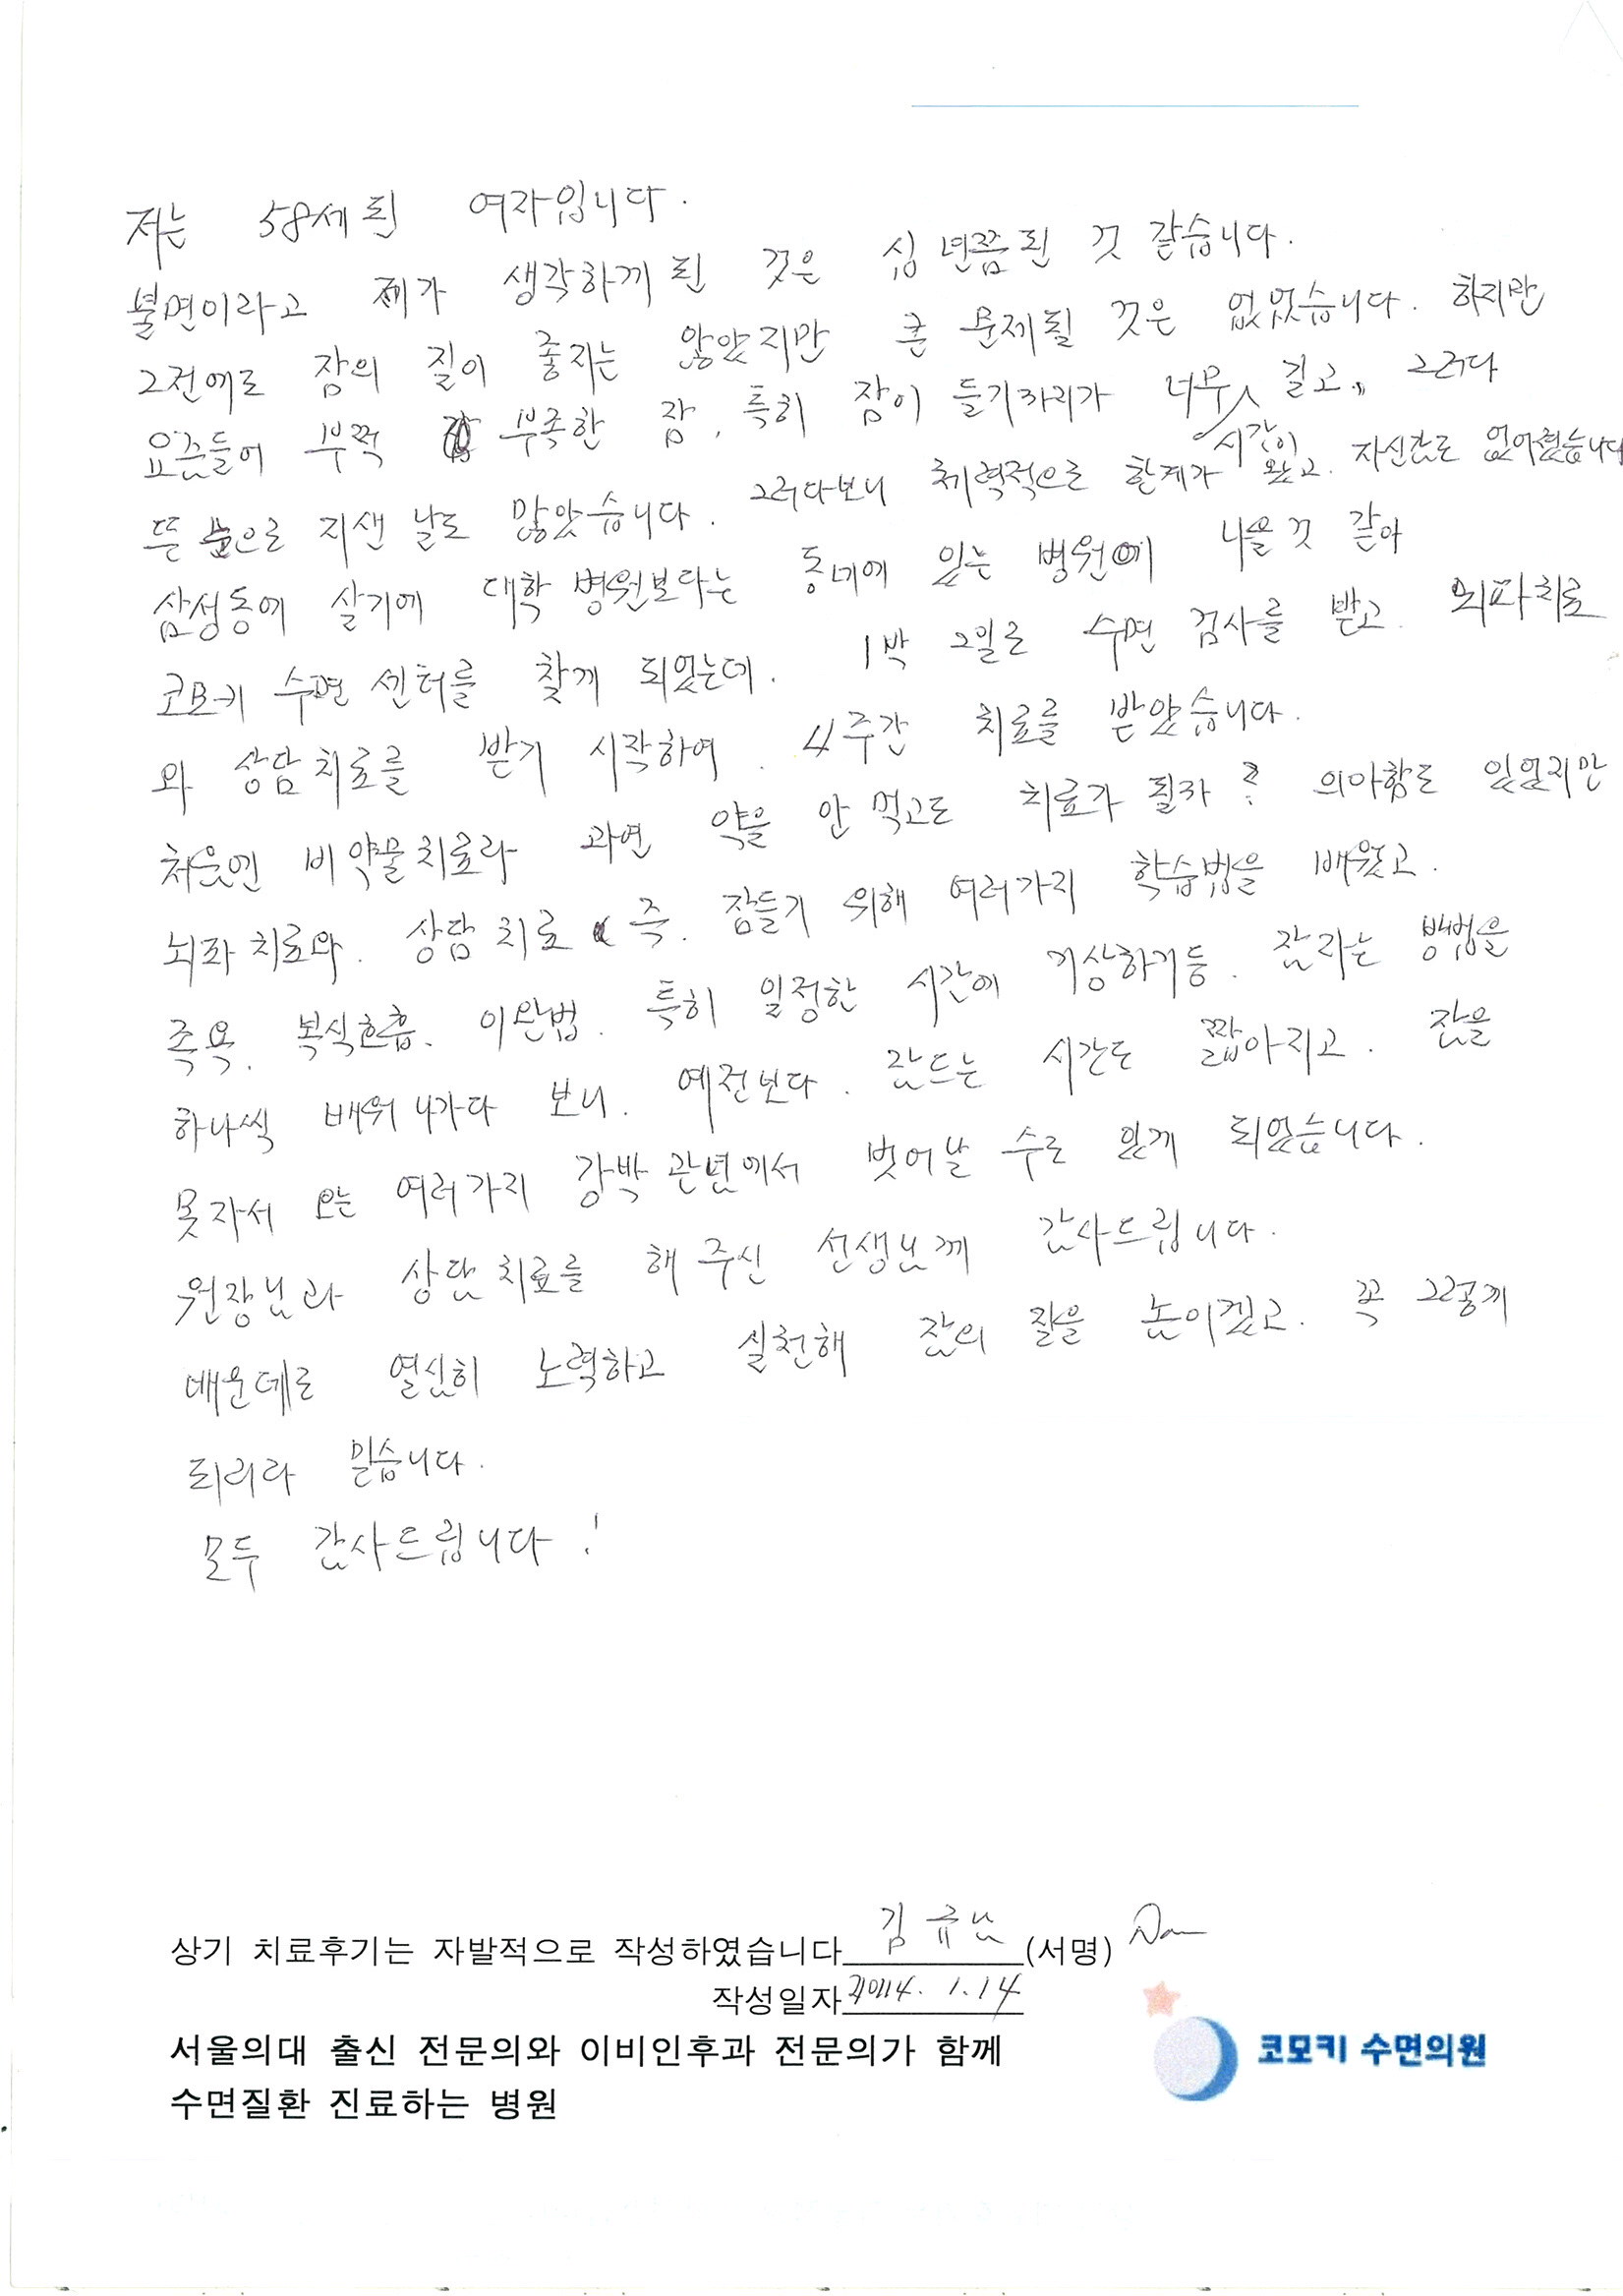 저는 58세 된 여자입니다.
불면이라고 제가 생각하게 된 것은 십 년쯤 된 것 같습니다.
그전에도 잠의 질이 좋지는 않았지만 큰 문제될 것은 없었습니다. 하지만
요즘들어 부쩍 부족한 잠, 특히 잠이 들기까지가 너무 시간이 길고, 그러다
뜬 눈으로 지샌 날도 많았습니다. 그러다보니 체력적으로 한계가 왔고, 자신감도 없어졌습니다
삼성동에 살기에 대학 병원보다는 동네에 있는 병원에 나을 것 같아
코모키 수면 센터를 찾게 되었는데. 1박 2일로 수면 검사를 받고. 뇌파치료
와 상담치료를 받기 시작하여. 4주간 치료를 받았습니다.
처음엔 비약물치료라 과연 약을 안 먹고도 치료가 될까? 의아함도 있었지만
뇌좌치료와. 상담치료 즉. 잠들기 위해 여러가지 학습법을 배웠고.
족욕. 복식호흡. 이완법. 특히 일정한 시간에 기상하기등. 잠자는 방법을
하나씩 배워나가다 보니. 예전보다. 잠드는 시간도 짧아지고. 잠을
못자서 오는 여러가지 강박관념에서 벗어날 수도 있게 되었습니다.
원장님과 상담치료를 해 주신 선생님께 감사드립니다.
배운데로 열심히 노력하고 실천해 잠의 질을 높이겠고. 꼭 그렇게
되리라 믿습니다.
모두 감사드립니다!
상기 치료후기는 자발적으로 작성하였습니다 김 (서명)
작성일자 2014. 1. 14
서울의대 출신 전문의와 이비인후과 전문의가 함께
수면질환 진료하는 병원
코모키 수면의원